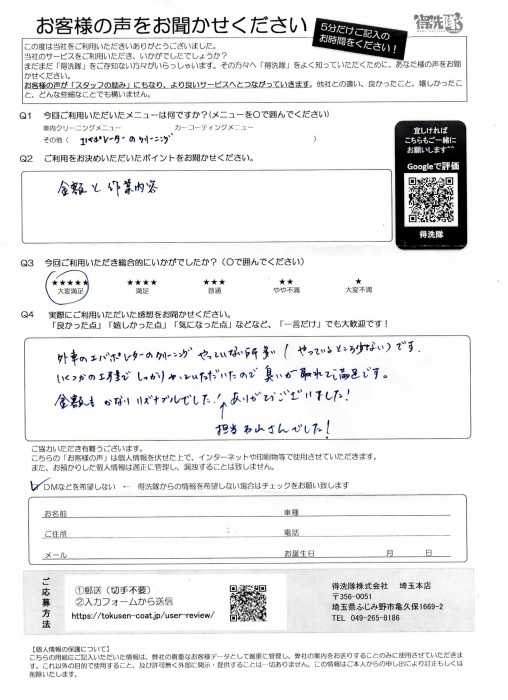 お客様の声をお聞かせください
5分だけご記入の
お時間をください！
得洗隊
この度は当社をご利用いただきありがとうございました。
当社のサービスをご利用いただき、いかがでしたでしょうか？
まだまだ「得洗隊」をご存知ない方々がいらっしゃいます。その方々へ「得洗隊」をよく知っていただくために、あなた様の声をお聞
かせください。
お客様の声が「スタッフの励み」にもなり、より良いサービスへとつながっていきます。他社との違い、良かったこと、嬉しかったこ
と、どんな些細なことでも構いません。
Q1 今回ご利用いただいたメニューは何ですか？（メニューを〇で囲んでください）
車内クリーニングメニュー カーコーティングメニュー
その他（ エバポレーターのクリーニング ）
Q2 ご利用をお決めいただいたポイントをお聞かせください。
金額と作業内容
宜しければ
こちらもご一緒に
お願いします^^
Googleで評価
得洗隊
Q3 今回ご利用いただき総合的にいかがでしたか？（〇で囲んでください）
★★★★★ ★★★★ ★★★ ★★ ★
大変満足 満足 普通 やや不満 大変不満
Q4 実際にご利用いただいた感想をお聞かせください。
「良かった点」「嬉しかった点」「気になった点」などなど、「一言だけ」でも大歓迎です！
外車のエバポレーターのクリーニングやっていない所多い（やっているところ少ない）です。
いくつかの工程でしっかりやっていただいたので臭いが取れて満足です。
金額もかなりリーズナブルでした！ありがとうございました！
↑
担当石山さんでした！
ご協力いただき有難うございます。
こちらの「お客様の声」は個人情報を伏せた上で、インターネットや印刷物等で使用させていただきます。
また、お預かりした個人情報は適正に管理し、漏洩することは致しません。
DMなどを希望しない ← 得洗隊からの情報を希望しない場合はチェックをお願い致します
お名前 車種
ご住所 電話
メール お誕生日 月 日
ご応募方法
①郵送（切手不要）
②入力フォームから送信
https://tokusen-coat.jp/user-review/
得洗隊株式会社 埼玉本店
〒356-0051
埼玉県ふじみ野市亀久保1669-2
TEL 049-265-8186
【個人情報の保護について】
こちらの用紙にご記入いただいた情報は、弊社の貴重なお客様データとして厳重に管理し、弊社の案内をお送りすることのみに使用させていただきま
す。これ以外の目的で使用すること、及び許可無く外部に開示・提供することは一切ありません。この情報はご本人からの申し出により訂正もしくは
削除いたします。